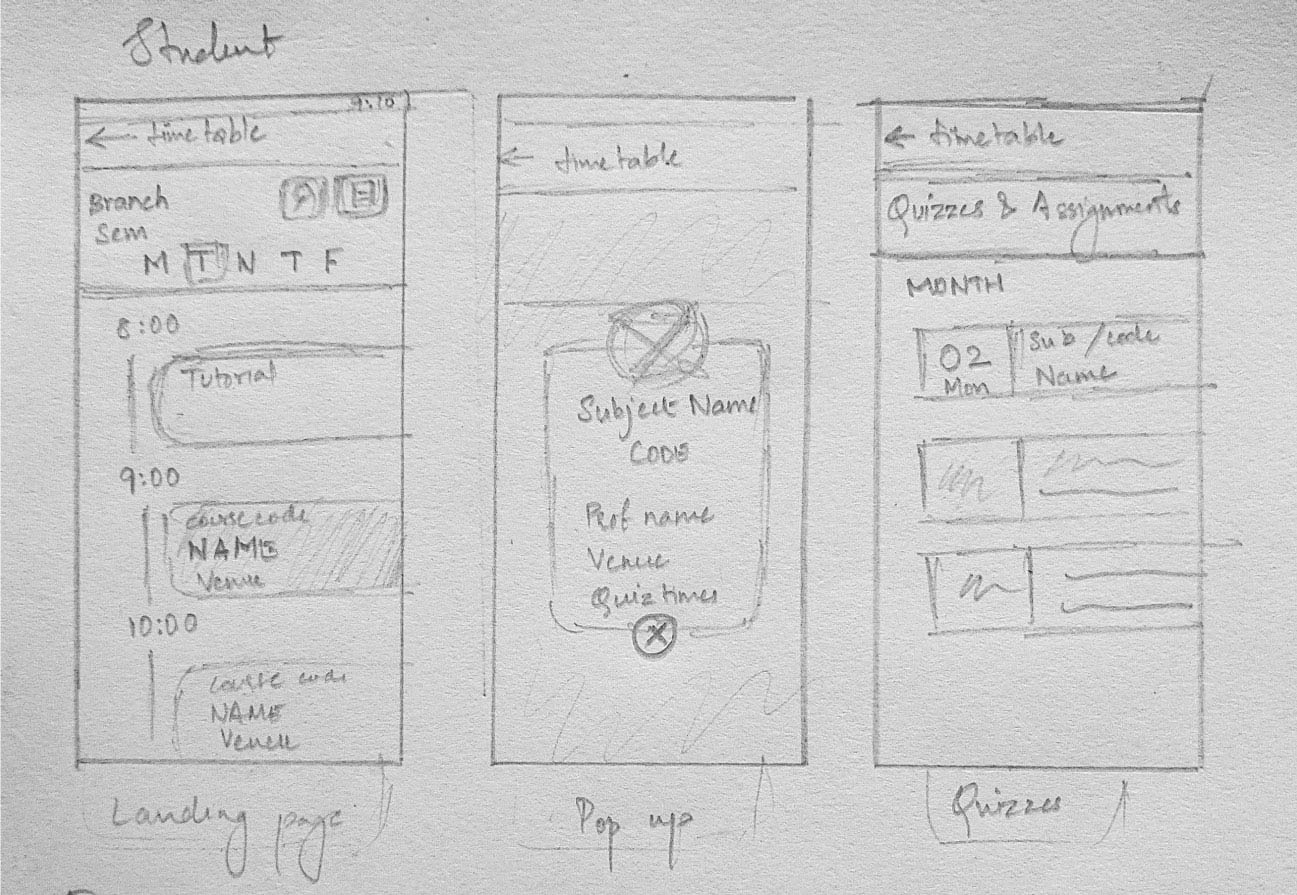 Student
9:10
← timetable
Branch
Sem
M T W T F
8:00
Tutorial
9:00
course code
NAME
Venue
10:00
course code
NAME
Venue
Landing page
← timetable
Subject Name
CODE
Prof name
Venue
Quiz times
X
Pop up
← timetable
Quizzes & Assignments
MONTH
02
Mon
Sub / code
Name
Quizzes